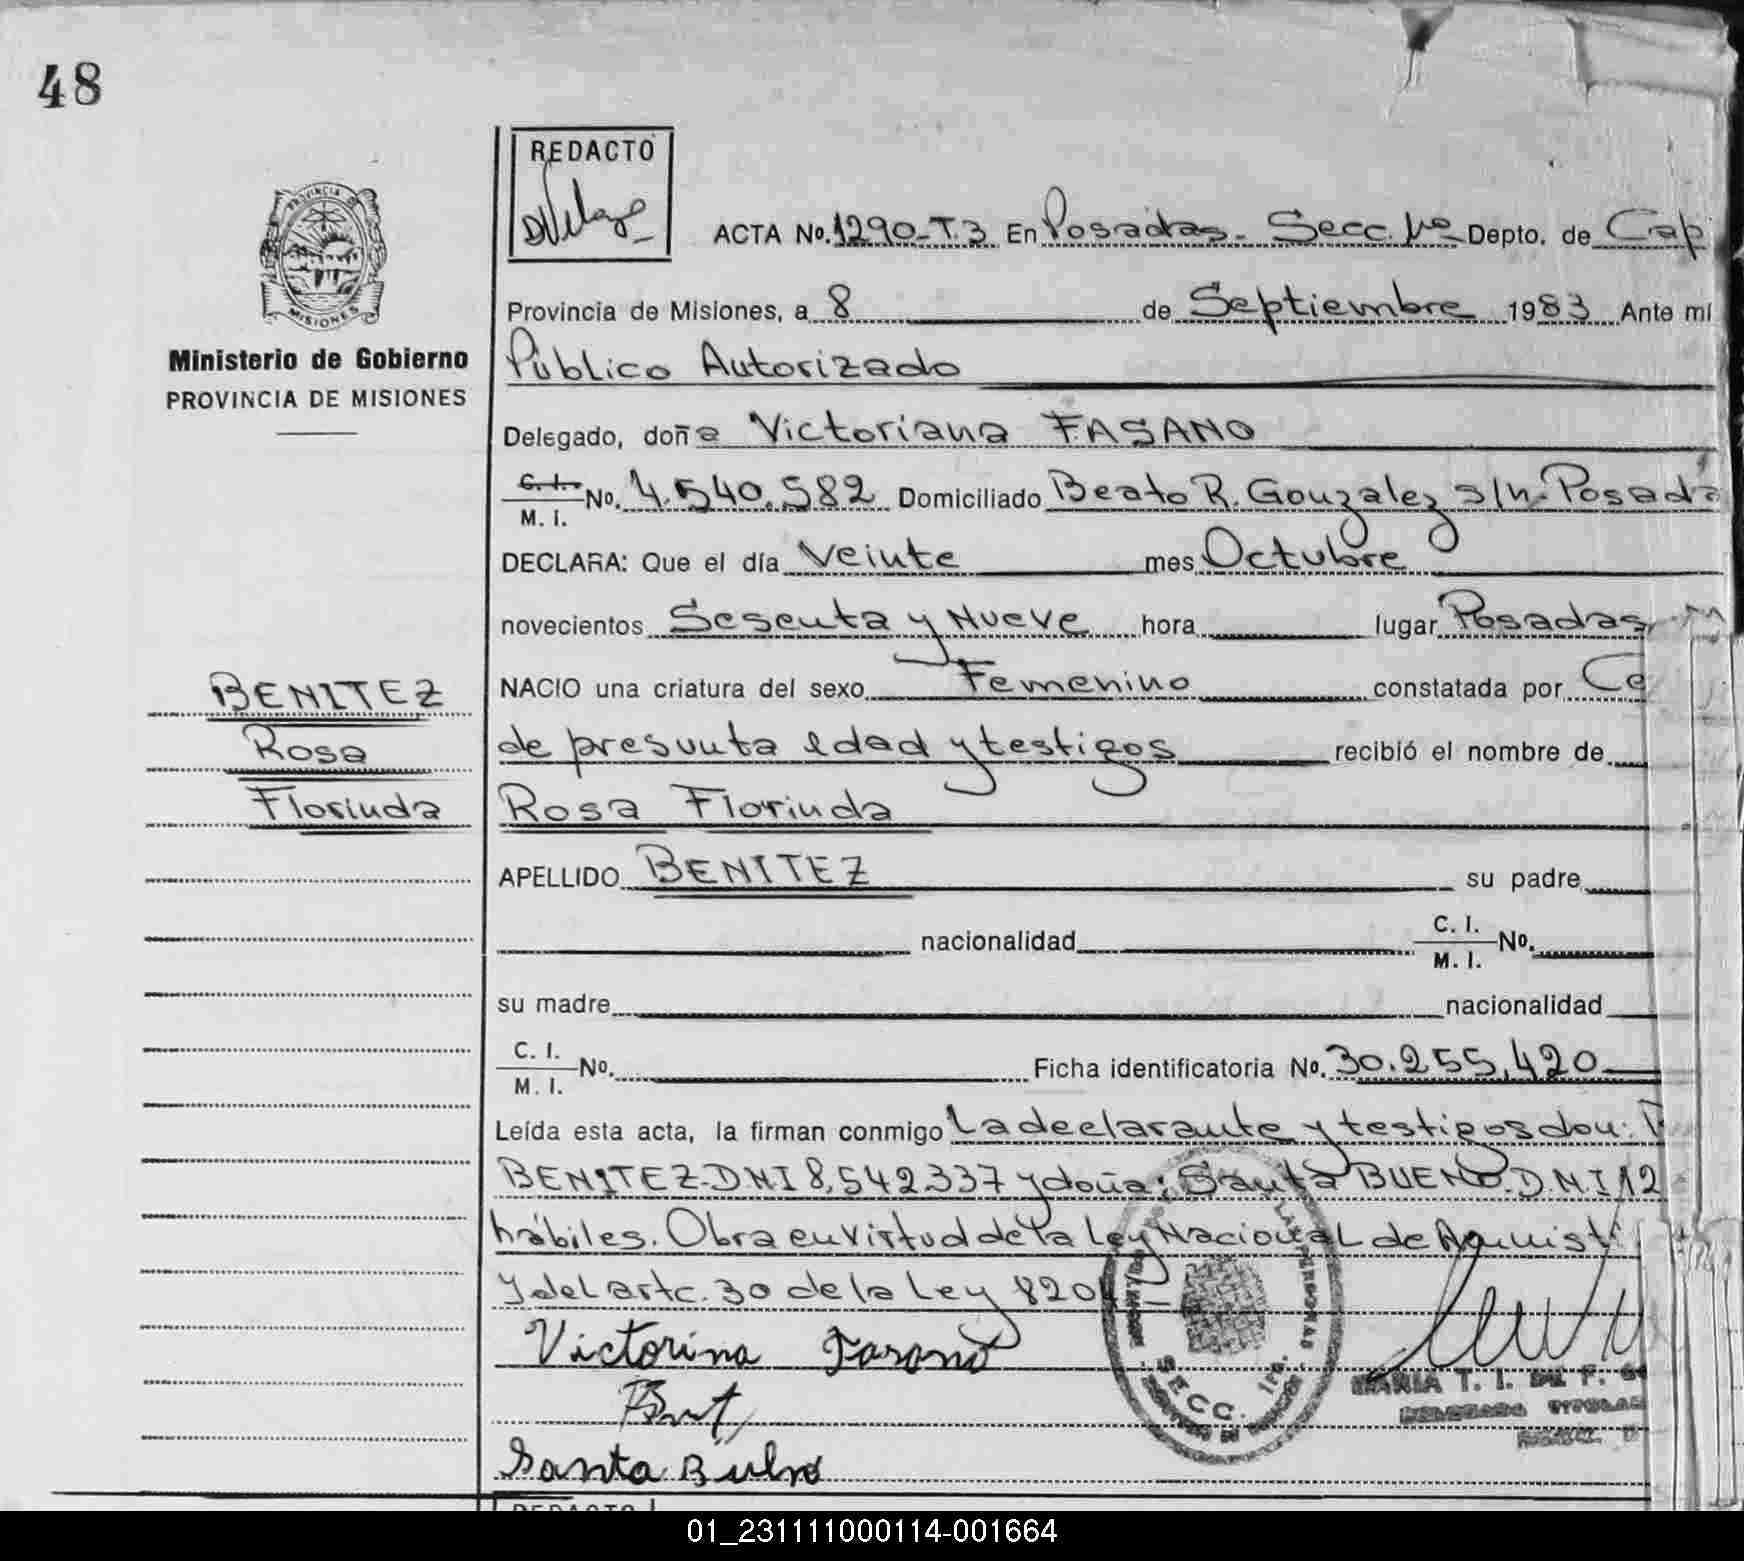 48
REDACTO
ACTA No. 1290-T.3 En Posadas - Secc. 1ra Depto. de Cap
Provincia de Misiones, a 8 de Septiembre 1983 Ante mí
Público Autorizado
Ministerio de Gobierno
PROVINCIA DE MISIONES
Delegado, doña Victoriana FASANO
C. I. M. I. No. 4.540.582 Domiciliado Beato R. Gonzalez s/n. Posada
DECLARA: Que el día Veinte mes Octubre
novecientos Sesenta y Nueve hora lugar Posadas
BENITEZ
Rosa
Florinda
NACIO una criatura del sexo Femenino constatada por Ce
de presunta edad y testigos recibió el nombre de
Rosa Florinda
APELLIDO BENITEZ su padre
nacionalidad C. I. M. I. No.
su madre nacionalidad
C. I. M. I. No. Ficha identificatoria No. 30.255.420
Leída esta acta, la firman conmigo La declarante y testigos don:
BENITEZ-DNI 8.542.337 y doña: Santa BUENO-D.N.I 12
hábiles. Obra en virtud de la Ley Nacional de Amnisti
y del artc. 30 de la Ley 820
Victorina Fasano
Santa Bueno
SECC. 1ra.
MARIA T. I. DE F.
DELEGADA TITULAR
REDACTO
01_231111000114-001664